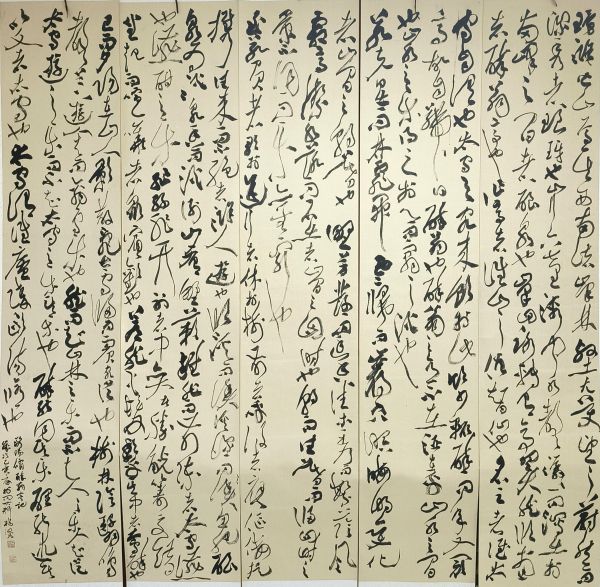 環滁皆山也其西南諸峰林壑尤美望之蔚然而
深秀者琅琊也山行六七里漸聞水聲潺潺而瀉出於
兩峰之間者釀泉也峰回路轉有亭翼然臨於泉上
者醉翁亭也作亭者誰山之僧智仙也名之者誰太
守自謂也太守與客來飲於此飲少輒醉而年又最
高故自號曰醉翁也醉翁之意不在酒在乎山水之間
也山水之樂得之心而寓之酒也
若夫日出而林霏開雲歸而巖穴暝晦明變化
者山間之朝暮也野芳發而幽香佳木秀而繁陰風
霜高潔水落而石出者山間之四時也朝而往暮而歸四時之
景不同而樂亦無窮也
至於負者歌於途行者休於樹前者呼後者應傴僂提
攜往來而不絕者滁人遊也臨溪而漁溪深而魚肥釀
泉為酒泉香而酒洌山肴野蔌雜然而前陳者太守宴
也宴酣之樂非絲非竹射者中弈者勝觥籌交錯
坐起而喧嘩者眾賓歡也蒼顏白髮頹然乎其中者太守醉也
已而夕陽在山人影散亂太守歸而賓客從也樹林陰翳鳴
聲上下遊人去而禽鳥樂也然而禽鳥知山林之樂而不知人之樂人知從
太守遊之樂而不知太守之樂其樂也醉能同其樂醒能述
以文者太守也太守謂誰廬陵歐陽修也
歐陽修醉翁亭記